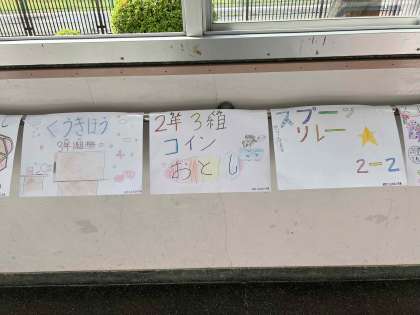 くうきほう
2年3組
コイン
おとし
スプーン
リレー
2-2